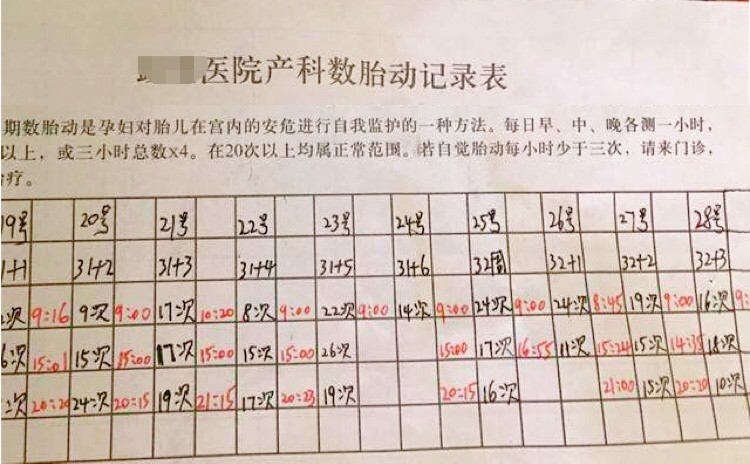 医院产科数胎动记录表
期数胎动是孕妇对胎儿在宫内的安危进行自我监护的一种方法。每日早、中、晚各测一小时，
以上，或三小时总数X4。在20次以上均属正常范围。若自觉胎动每小时少于三次，请来门诊，
疗。
19号 20号 21号 22号 23号 24号 25号 26号 27号 28号
31+2 31+3 31+4 31+5 31+6 32周 32+1 32+2 32+3
次 9:16 9次 9:00 17次 10:20 8次 9:00 22次 9:00 14次 9:00 24次 9:00 24次 8:45 19次 9:00 16次
次 15:01 15次 15:00 17次 15:00 15次 15:00 26次 15:00 17次 16:55 11次 15:24 15次 14:35 18次
次 20:20 24次 20:15 19次 21:15 17次 20:23 19次 20:15 16次 21:00 15次 20:20 10次